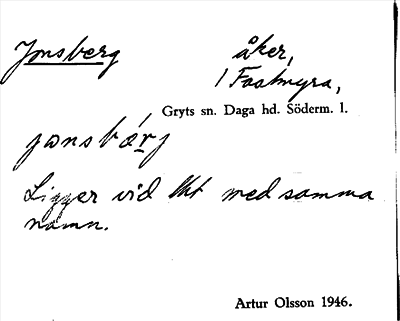 Jonsberg åker,
1 Fastmyra,
Gryts sn. Daga hd. Söderm. l.
jonsbärj
Ligger vid tht med samma
namn.
Artur Olsson 1946.